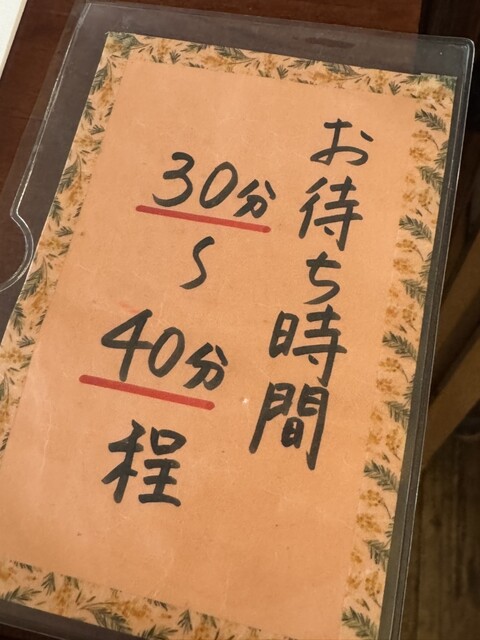 お待ち時間
30分
〜
40分
程